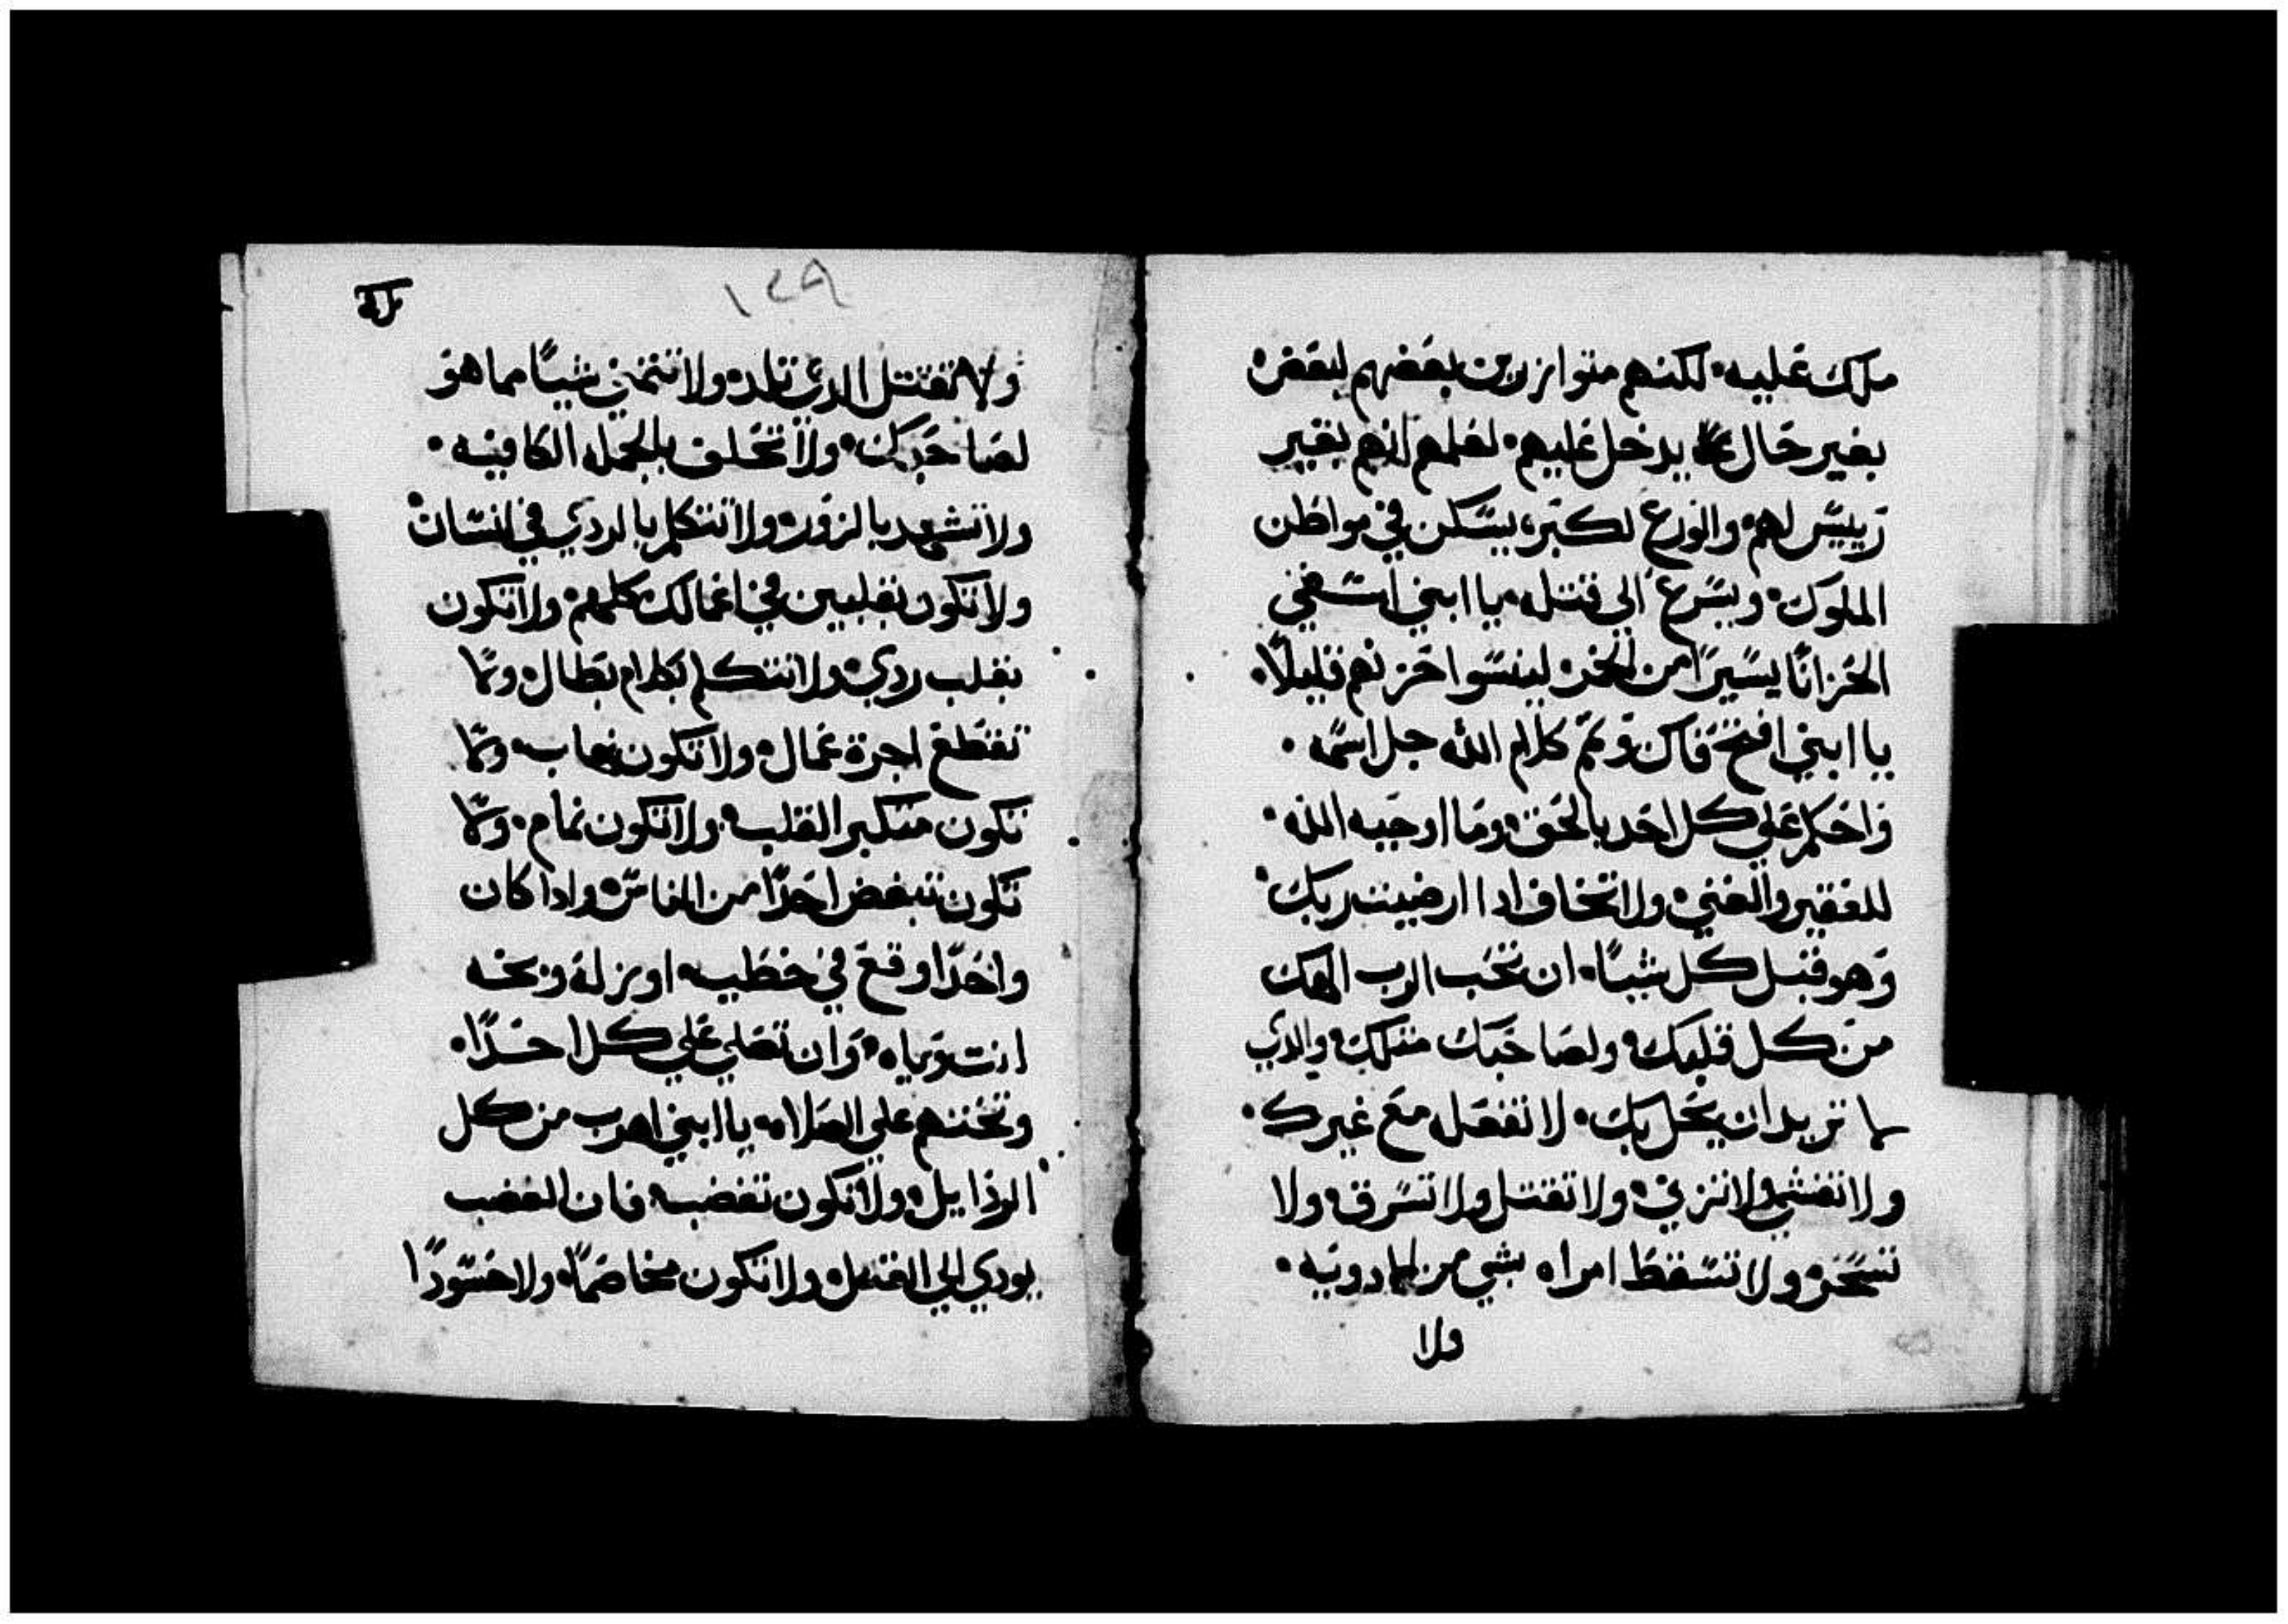 ملك عليه. لكنهم متوازرين بعضهم لبعض.
بغير حال يدخل عليهم. لعلمهم انهم بغير
رييس لهم. والورع لكبر. يسكن في مواطن
الملوك. ويسرع الي قتله. يا ابني اسقي
الحزانا يسيرًا من الخمر. لينسوا حزنهم قليلًا.
يا ابني افتح فاك وتمم كلام الله جل اسمه.
واحكم علي كل احد بالحق. وما اوجبه الله.
للفقير والغني. ولا تخاف ادا ارضيت ربك.
وهو قبل كل شيئًا. ان تحب الرب الهك
من كل قلبك. ولصاحبك متلك. والدي
ما تريد ان يحل بك. لا تفعله مع غيرك.
ولا تغش ولا تزني. ولا تقتل ولا تسرق. ولا
تسحر. ولا تسقط امراه بشي من الادويه.
ولا
١٢٩
ولا تقتل الدي تلد. ولا تتمني شيًا مما هو
لصاحبك. ولا تحلف بالجمله الكافيه.
ولا تشهد بالزور. ولا تتكلم بالردي في انسان.
ولا تكون بقلبين في اعمالك كلهم. ولا تكون
بقلب ردي. ولا تتكلم بكلام بطال. ولا
تقطع اجرة عمال. ولا تكون نهاب. ولا
تكون متكبر القلب. ولا تكون نمام. ولا
تكون تبغض احدًا من الناس. وادا كان
واحدًا وقع في خطيه. او بزلة وبخه
انت وياه. وان تصلي علي كل احدًا.
وتحتهم علي الصلاه. يا ابني اهرب من كل
الردايل. ولا تكون تغضب. فان الغضب
يودي الي القتل. ولا تكون مخاصمًا. ولا حسودًا